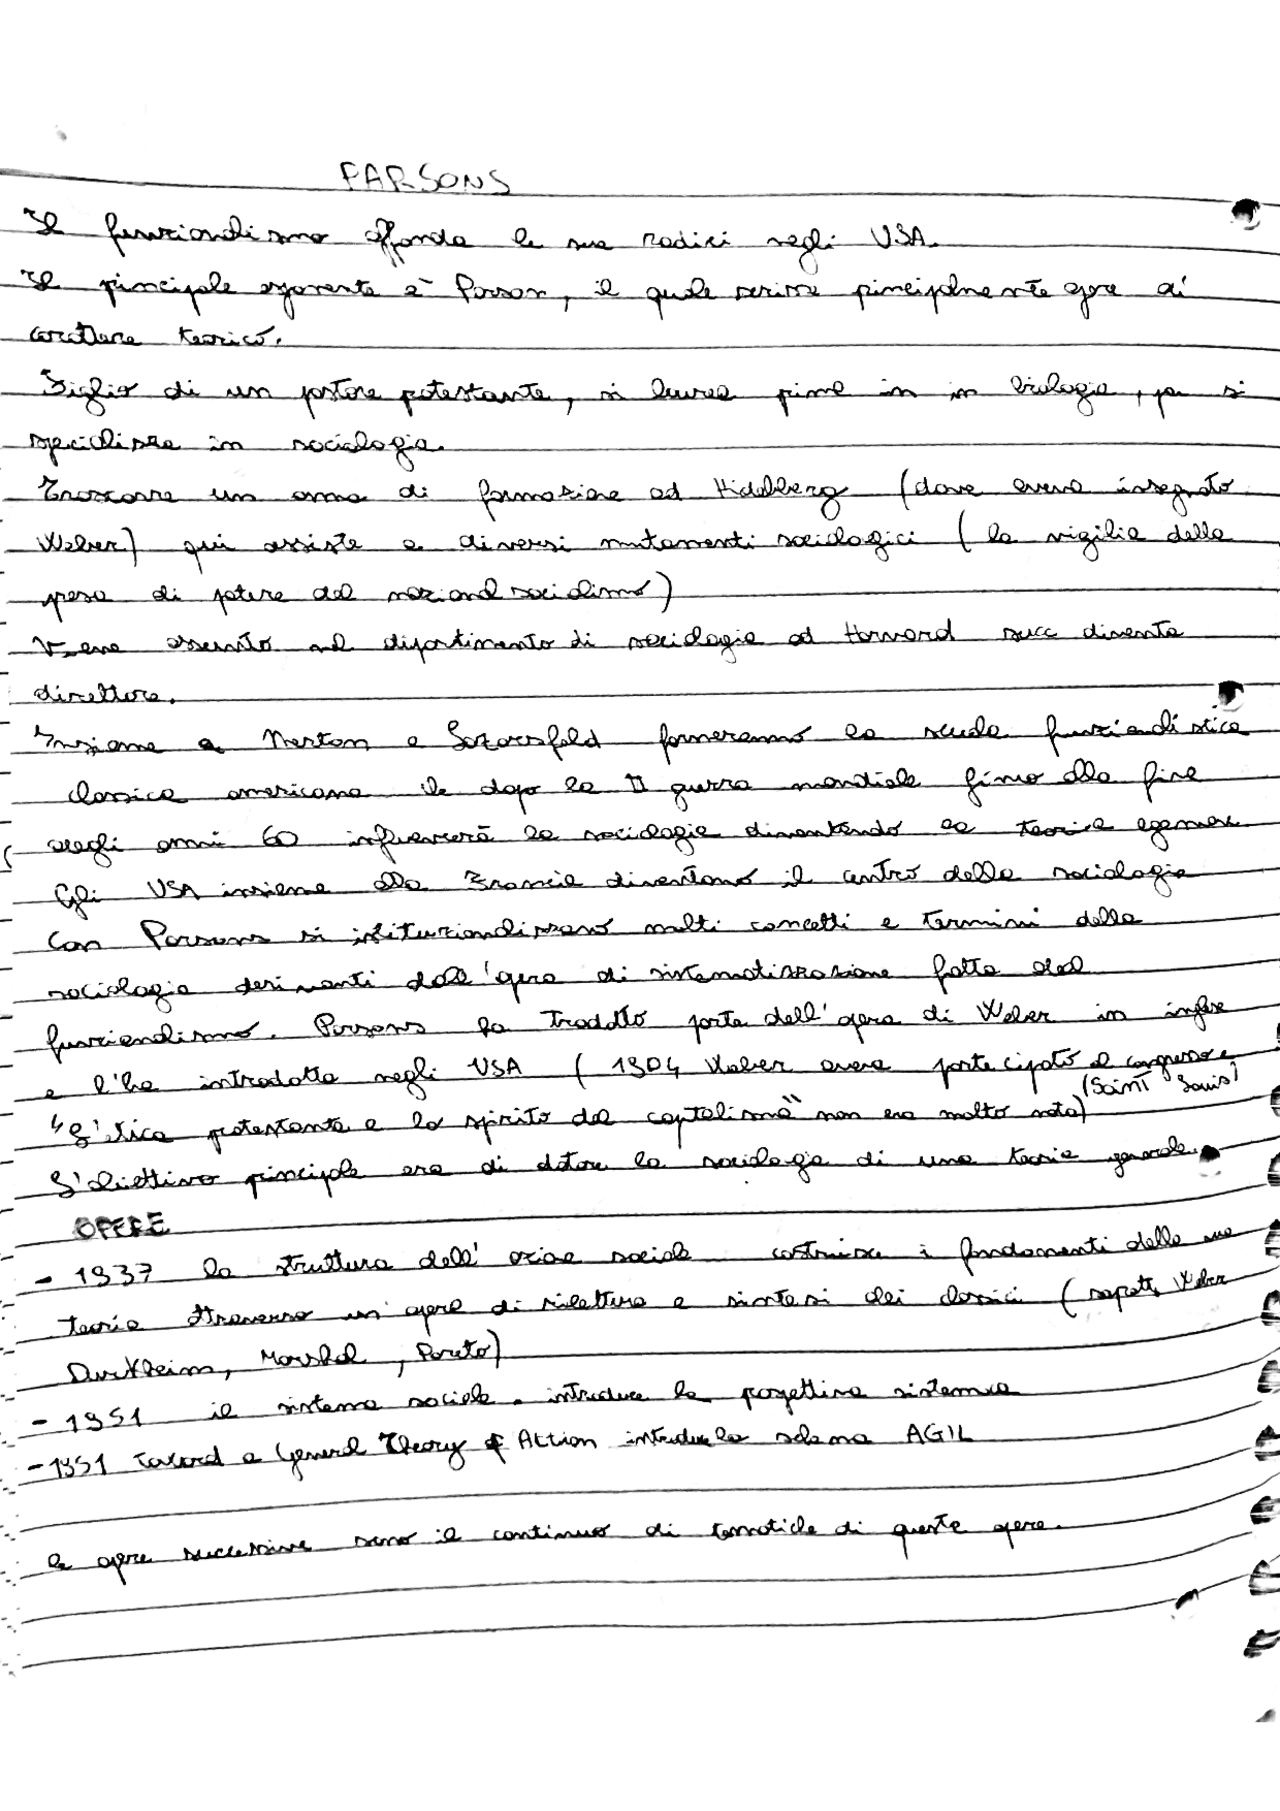 PARSONS
Il funzionalismo affonda le sue radici negli USA.
Il principale esponente è Parson, il quale scrisse principalmente opere di
carattere teorico.
Figlio di un pastore protestante, si laurea prima in in biologia, poi si
specializza in sociologia.
Trascorre un anno di formazione ad Hidelberg (dove aveva insegnato
Weber) qui assiste a diversi mutamenti sociologici (la vigilia della
presa di potere del nazionalsocialismo)
Viene assunto nel dipartimento di sociologia ad Harvard succ diventa
direttore.
Insieme a Merton e Lazarsfeld formeranno la scuola funzionalistica
classica americana che dopo la II guerra mondiale fimo alla fine
degli anni 60 influenzerà la sociologia diventando la teoria egemone
Gli USA insieme alla Francia diventano il centro della sociologia
Con Parsons si istituzionalizzano molti concetti e termini della
sociologia derivanti dall'opera di sistematizzazione fatta dal
funzionalismo. Parsons ha tradotto parte dell'opera di Weber in inglese
e l'ha introdotta negli USA (1904 Weber aveva partecipato al congresso e
(Saint Louis)
"L'etica protestante e lo spirito del captalismo" non era molto nota)
L'obiettivo principale era di dotare la sociologia di una teoria generale.
OPERE
- 1937 la struttura dell'azione sociale costruisce i fondamenti della sua
teoria attraverso un'opera di rilettura e sintesi dei classici ( Weber
Durkheim, Marshal, Pareto)
- 1951 il sistema sociale. introduce la prospettiva sistemica
- 1951 Toward a General Theory of Action introduce lo schema AGIL
le opere successive sono il continuo di tematiche di queste opere.